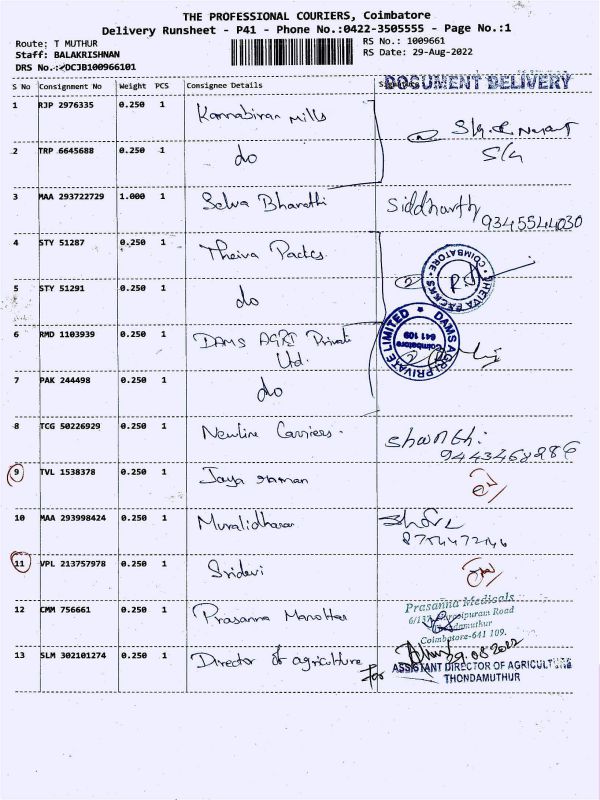 THE PROFESSIONAL COURIERS, Coimbatore
Delivery Runsheet - P41 - Phone No.:0422-3505555 - Page No.:1
Route: T MUTHUR
RS No.: 1009661
Staff: BALAKRISHNAN
RS Date: 29-Aug-2022
DRS No.: DCJB100966101
DOCUMENT DELIVERY
S No Consignment No Weight PCS Consignee Details
1 RJP 2976335 0.250 1 Kannabiran Mills
2 TRP 6645688 0.250 1 do
3 MAA 293722729 1.000 1 Selva Bharathi Siddharth
9345544030
4 STY 51287 0.250 1 Theiva Packs
COIMBATORE
5 STY 51291 0.250 1 do
6 RMD 1103939 0.250 1 DAMS AGRI Private
Ltd.
DAMS AGRI PRIVATE LIMITED
Coimbatore
641 109
7 PAK 244498 0.250 1 do
8 TCG 50226929 0.250 1 Newline Carriers. Shanthi
9443468286
9 TVL 1538378 0.250 1 Jaya raman
10 MAA 293998424 0.250 1 Muralidharan
11 VPL 213757978 0.250 1 Sridevi
12 CMM 756661 0.250 1 Prasanna
Prasanna Medicals
Road
Coimbatore-641 109.
13 SLM 302101274 0.250 1 Director of agriculture
29.08.2022
for ASSISTANT DIRECTOR OF AGRICULTURE
THONDAMUTHUR